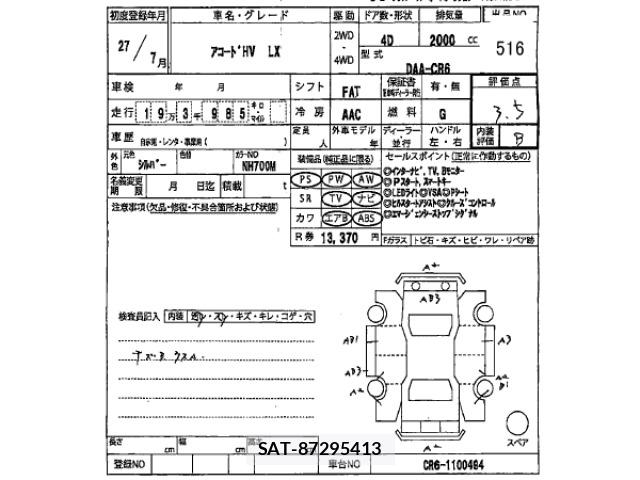 初度登録年月 車名・グレード 駆動 ドア数・形状 排気量 出品NO
27/7月 アコードHV LX 2WD - 4WD 4D 2000 cc 516
型式 DAA-CR6
車検 年 月 シフト FAT 保証書 有・無 評価点 3.5
走行 19万3千985 キロ・マイル 冷房 AAC 燃料 G 内装評価 B
車歴 自家用・レンタ・事業用( ) 定員 人 外車モデル 年 ディーラー・並行 ハンドル 左・右
外色 元色 シルバー 色替 カラーNO NH700M 装備品(純正品に限る) セールスポイント(正常に作動するもの)
名義変更期限 月 日迄 積載 t
PS PW AW
SR TV ナビ
カワ エアB ABS
◎インターナビ、TV、Bモニター
◎Pスタート、スマートキー
◎LEDライト◎VSA◎Pシート
◎ヒルスタートアシスト◎クルーズコントロール
◎エマージェンシーストップシグナル
注意事項(欠品・修復・不具合箇所および状態)
R券 13,370 円 Fガラス トビ石・キズ・ヒビ・ワレ・リペア跡
検査員記入 内装 キズ・キレ・コゲ・穴
キズB ウスル
A+
AB3
AB1 A3
AB3 A2
A2 B1
A2
スペア
長さ cm 幅 cm 高さ
SAT-87295413
登録NO 車台NO CR6-1100494